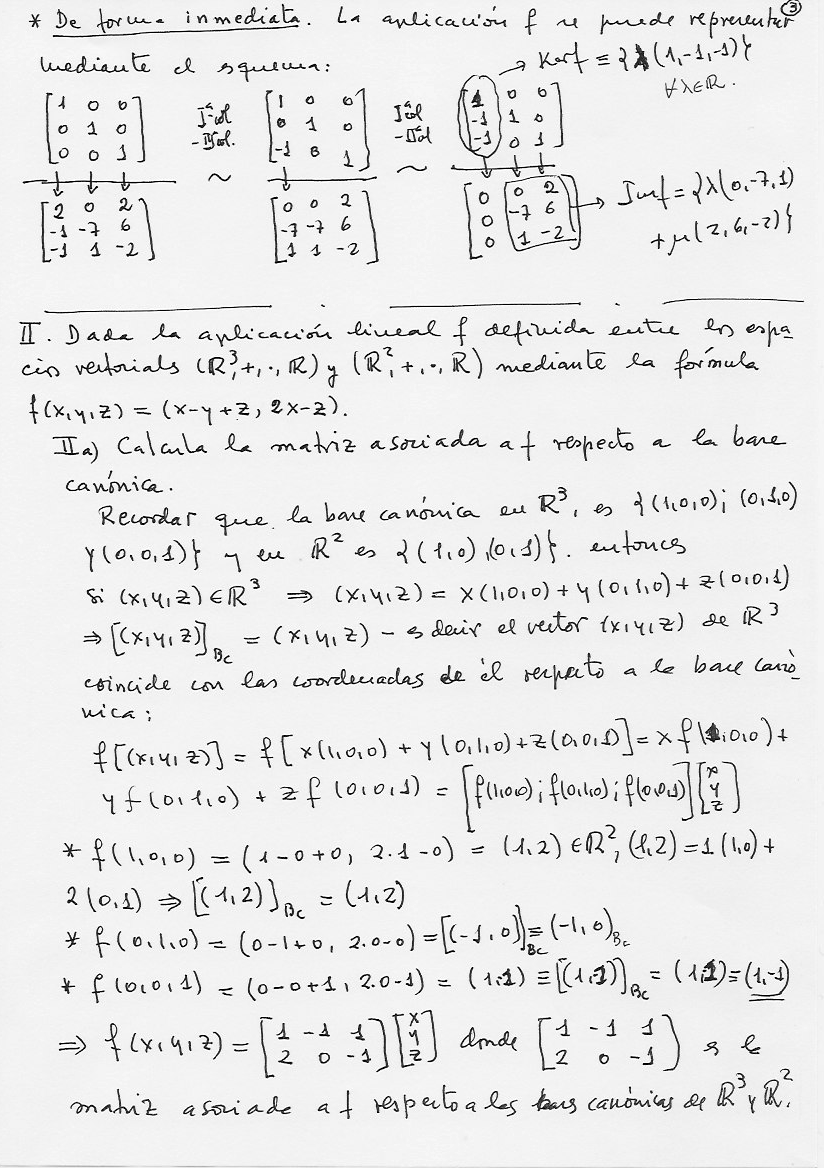 ③
* De forma inmediata. La aplicación f se puede representar
mediante el esquema:
→ Kerf ≡ {λ(1,-1,-1)}
∀λ∈ℝ.
[1 0 0 / 0 1 0 / 0 0 1] Iªcol -IIIcol. ~ [1 0 0 / 0 1 0 / -1 0 1] Iªcol -IIcol ~ [1 0 0 / -1 1 0 / -1 0 1]
[2 0 2 / -1 -7 6 / -1 1 -2] [0 0 2 / -7 -7 6 / 1 1 -2] [0 0 2 / 0 -7 6 / 0 1 -2] → Imf = {λ(0,-7,1)
+μ(2,6,-2)}
II. Dada la aplicación lineal f definida entre los espa-
cios vectorials (ℝ³,+,·,ℝ) y (ℝ²,+,·,ℝ) mediante la fórmula
f(x,y,z) = (x-y+z, 2x-z).
IIa) Calcula la matriz asociada a f respecto a la base
canónica.
Recordar que la base canónica en ℝ³, es {(1,0,0); (0,1,0)
y(0,0,1)} y en ℝ² es {(1,0),(0,1)}. entonces
Si (x,y,z)∈ℝ³ ⇒ (x,y,z) = x(1,0,0)+y(0,1,0)+z(0,0,1)
⇒ [(x,y,z)]Bc = (x,y,z) – es decir el vector (x,y,z) de ℝ³
coincide con las coordenadas de él respecto a la base canó-
nica:
f[(x,y,z)] = f[x(1,0,0) + y(0,1,0)+z(0,0,1)] = x f(1,0,0) +
y f(0,1,0) + z f(0,0,1) = [f(1,0,0); f(0,1,0); f(0,0,1)] [x / y / z]
* f(1,0,0) = (1-0+0, 2·1-0) = (1,2)∈ℝ², (1,2)=1(1,0)+
2(0,1) ⇒ [(1,2)]Bc = (1,2)
* f(0,1,0) = (0-1+0, 2·0-0) = [(-1,0)]Bc ≡ (-1,0)Bc
* f(0,0,1) = (0-0+1, 2·0-1) = (1,1) ≡ [(1,1)]Bc = (1,1) ≡ (1,-1)
⇒ f(x,y,z) = [1 -1 1 / 2 0 -1] [x / y / z] donde [1 -1 1 / 2 0 -1) es la
matriz asociada a f respecto a las bases canónicas de ℝ³ y ℝ².